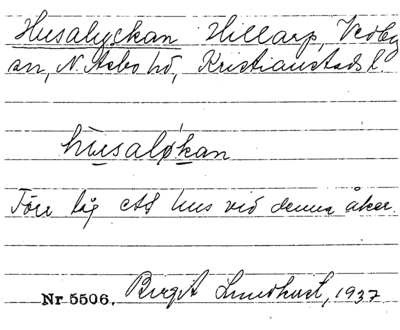 Husalyckan Hillarp, Vedby
sn, N. Åsbo hd, Kristianstads l.
hùsaløkan
Förr låg ett hus vid denna åker.
Nr 5506. Birgit Lundkvist, 1937